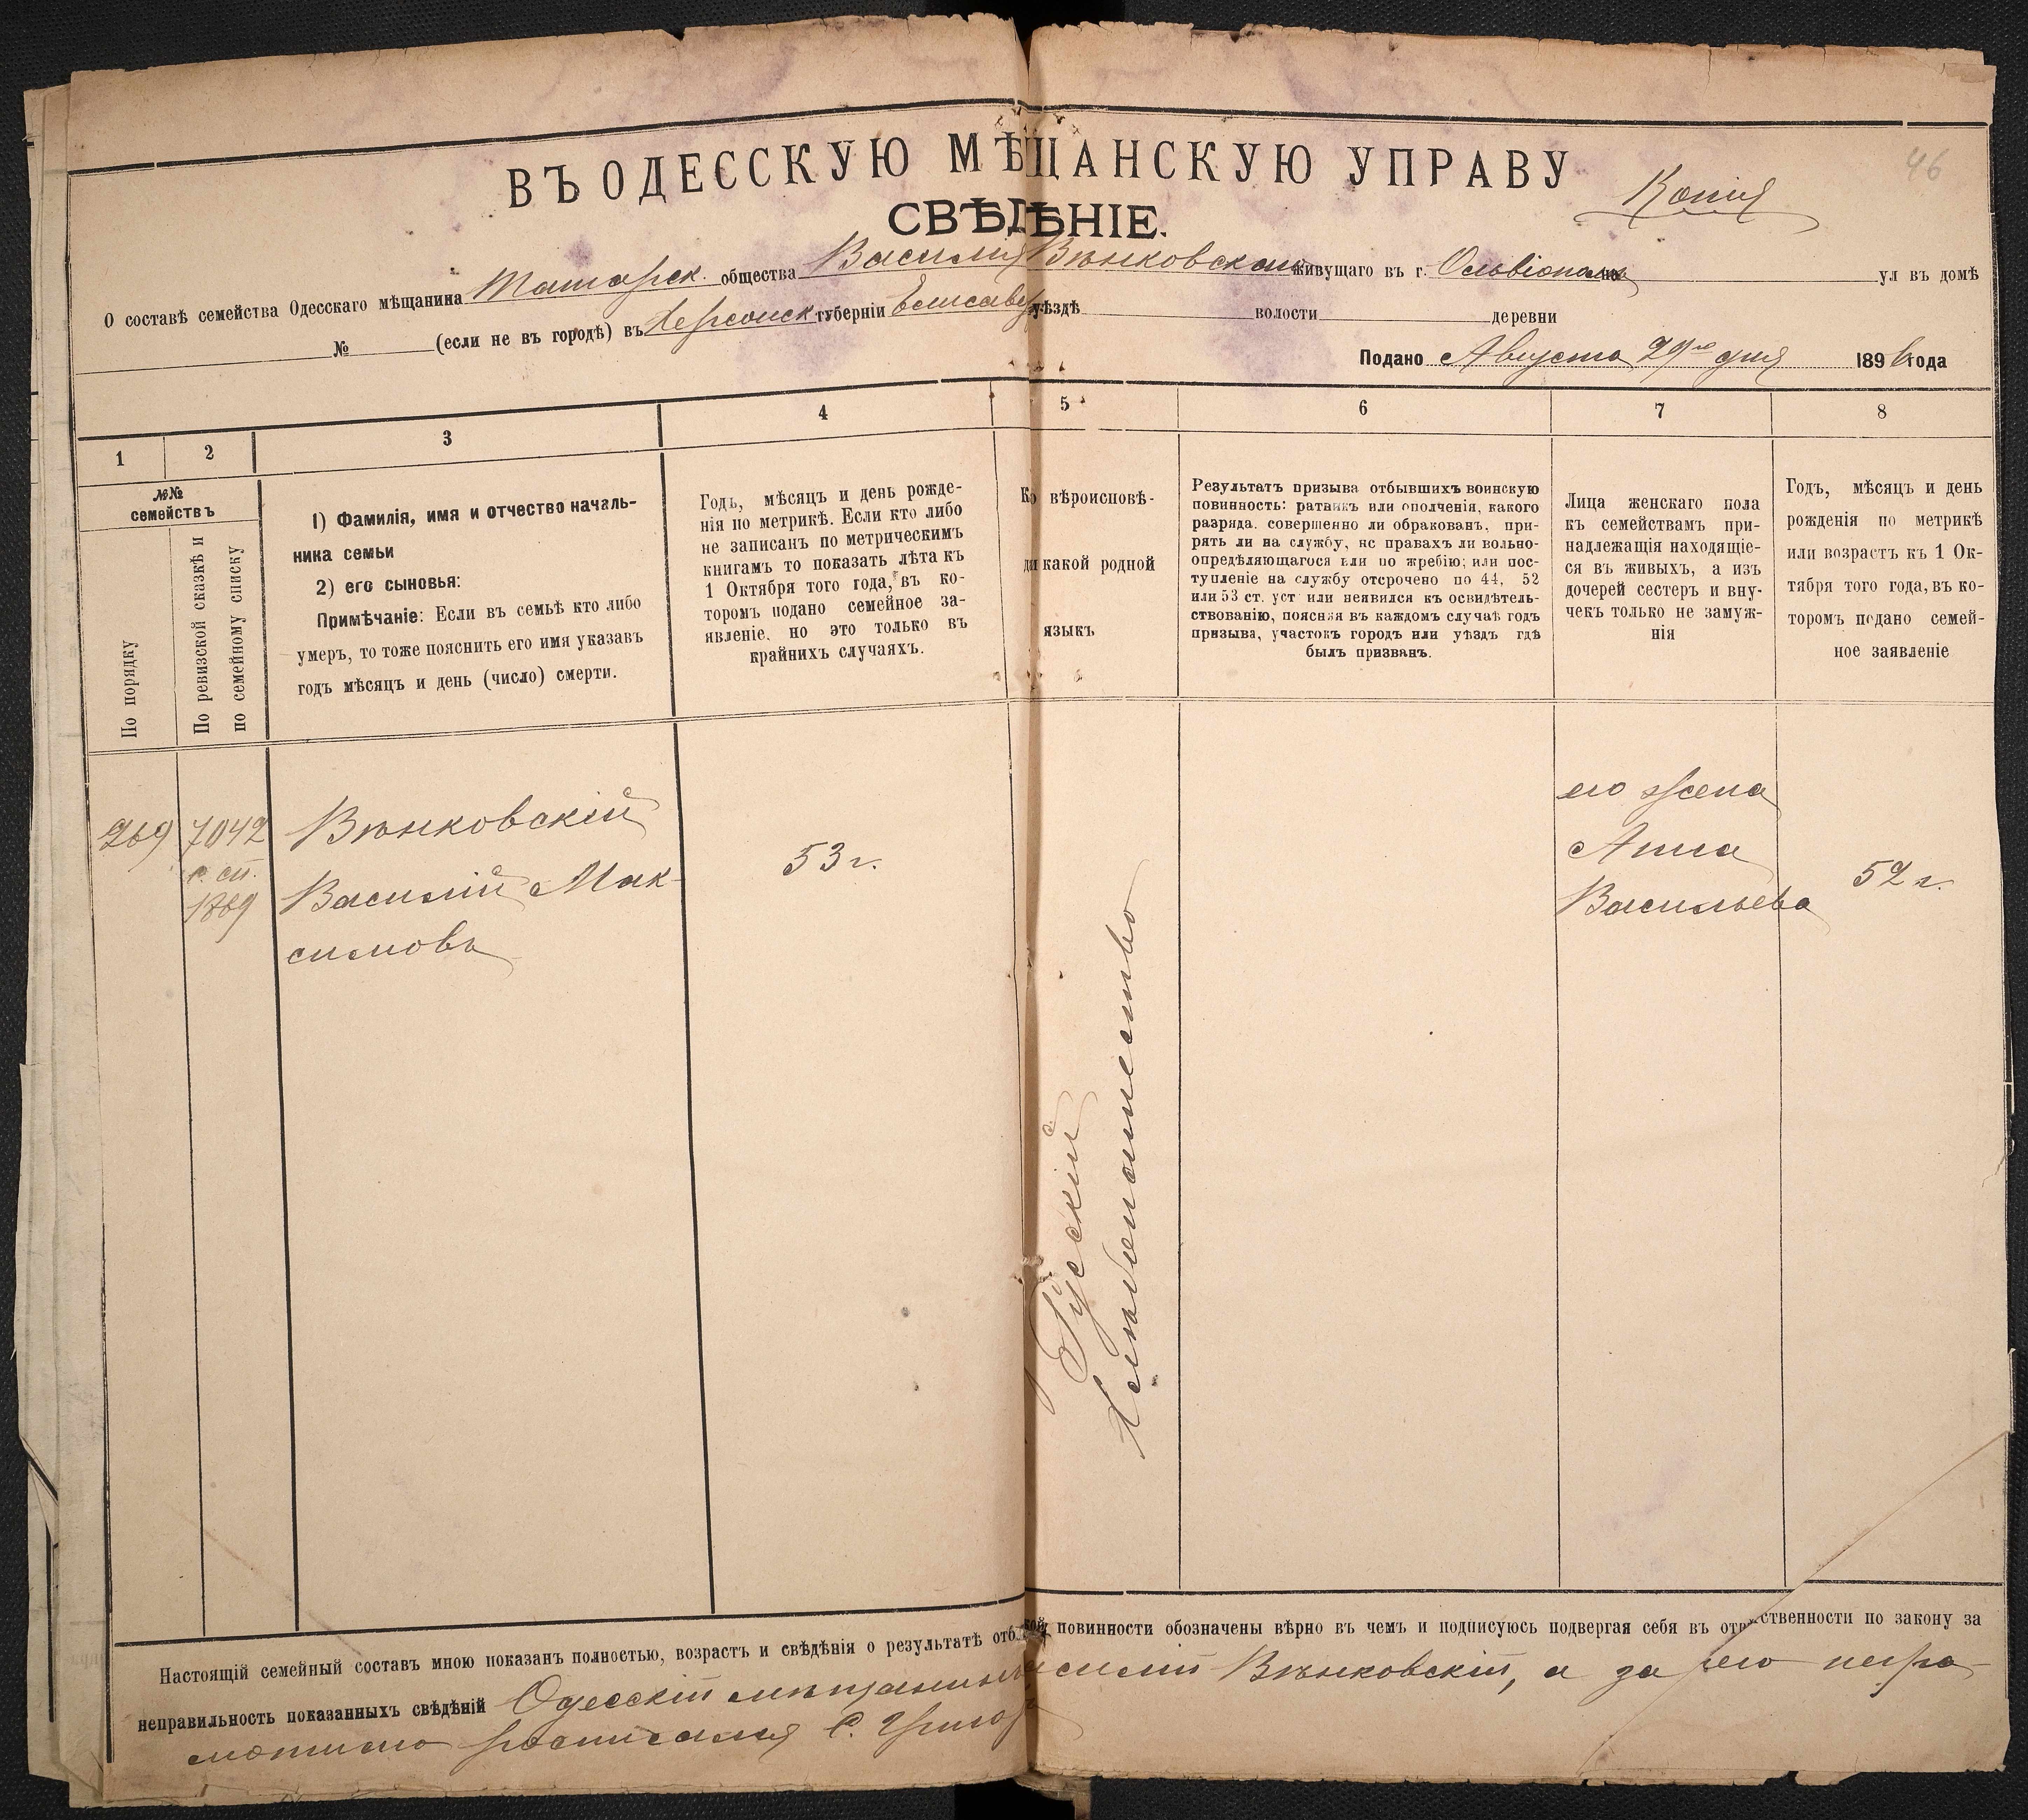 46
ВЪ ОДЕССКУЮ МѢЩАНСКУЮ УПРАВУ
Копія
СВѢДѢНІЕ.
О составѣ семейства Одесскаго мѣщанина Татарск. общества Василія Вѣнковскаго живущаго въ г. Ольвіополь на ул въ домѣ
№ (если не въ городѣ) въ Херсонск губерніи Елисавет уѣздѣ волости деревни
Подано Августа 29го дня 1896 года
1 2 3 4 5 6 7 8
№№
семействъ
По порядку
По ревизской сказкѣ и
по семейному списку
1) Фамилія, имя и отчество началь-
ника семьи
2) его сыновья:
Примѣчаніе: Если въ семьѣ кто либо
умеръ, то тоже пояснить его имя указавъ
годъ мѣсяцъ и день (число) смерти.
Годъ, мѣсяцъ и день рожде-
нія по метрикѣ. Если кто либо
не записанъ по метрическимъ
книгамъ то показать лѣта къ
1 Октября того года, въ ко-
торомъ подано семейное за-
явленіе, но это только въ
крайнихъ случаяхъ.
вѣроисповѣ-
какой родной
языкъ
Результатъ призыва отбывшихъ воинскую
повинность: ратникъ или ополченія, какого
разряда. совершенно ли обракованъ, при-
рять ли на службу, нс правахъ ли вольно-
опредѣляющагося или по жребію; или пос-
тупленіе на службу отсрочено по 44, 52
или 53 ст. уст или неявился къ освидѣтель-
ствованію, поясняя въ каждомъ случаѣ годъ
призыва, участокъ городъ или уѣздъ гдѣ
былъ призванъ.
Лица женскаго пола
къ семействамъ при-
надлежащія находящіе-
ся въ живыхъ, а изъ
дочерей сестеръ и вну-
чекъ только не замуж-
нія
Годъ, мѣсяцъ и день
рожденія по метрикѣ
или возрастъ къ 1 Ок-
тября того года, въ ко-
торомъ подано семей-
ное заявленіе
269
7042
с. сп.
1869
Вѣнковскій
Василій Мак-
симовъ
53 г.
Русскій
его жена
Анна
Васильева
52 г.
Настоящій семейный составъ мною показанъ полностью, возрастъ и свѣдѣнія о результатѣ повинности обозначены вѣрно въ чемъ и подписуюсь подвергая себя въ отвѣтственности по закону за
неправильность показанныхъ свѣдѣній Одесскій мѣщанинъ Василій Вѣнковскій, а за его негра-
мотного росписался С.